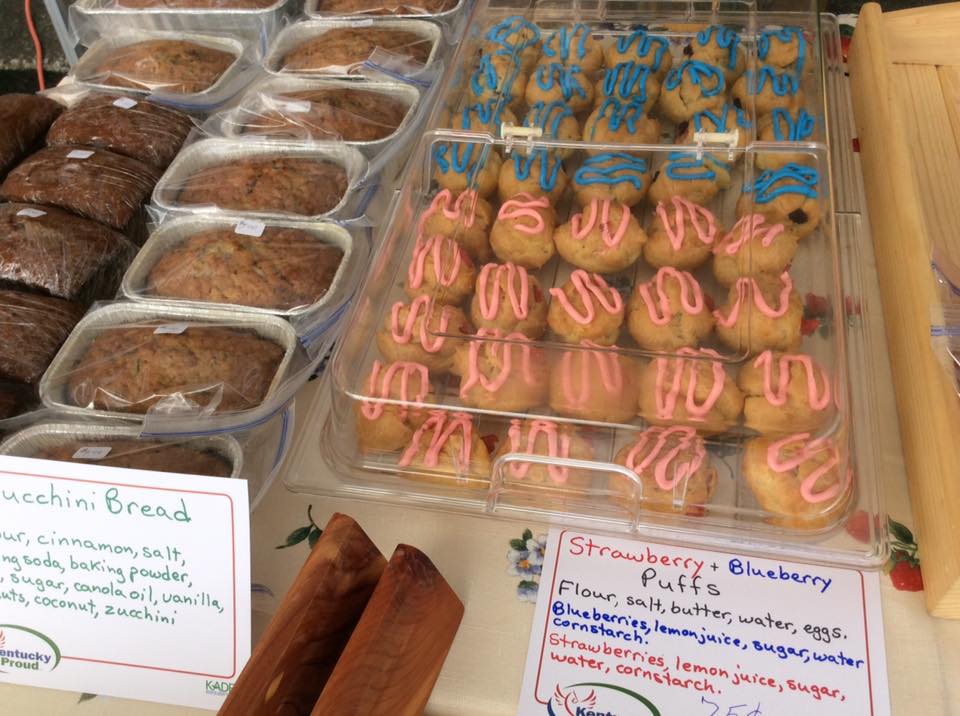 ucchini Bread
ur, cinnamon, salt,
ng soda, baking powder,
, sugar, canola oil, vanilla,
uts, coconut, zucchini
entucky
Proud
KADE
Strawberry + Blueberry
Puffs
Flour, salt, butter, water, eggs.
Blueberries, lemon juice, sugar, water
cornstarch.
Strawberries, lemon juice, sugar,
water, cornstarch.
Kentuc
75¢